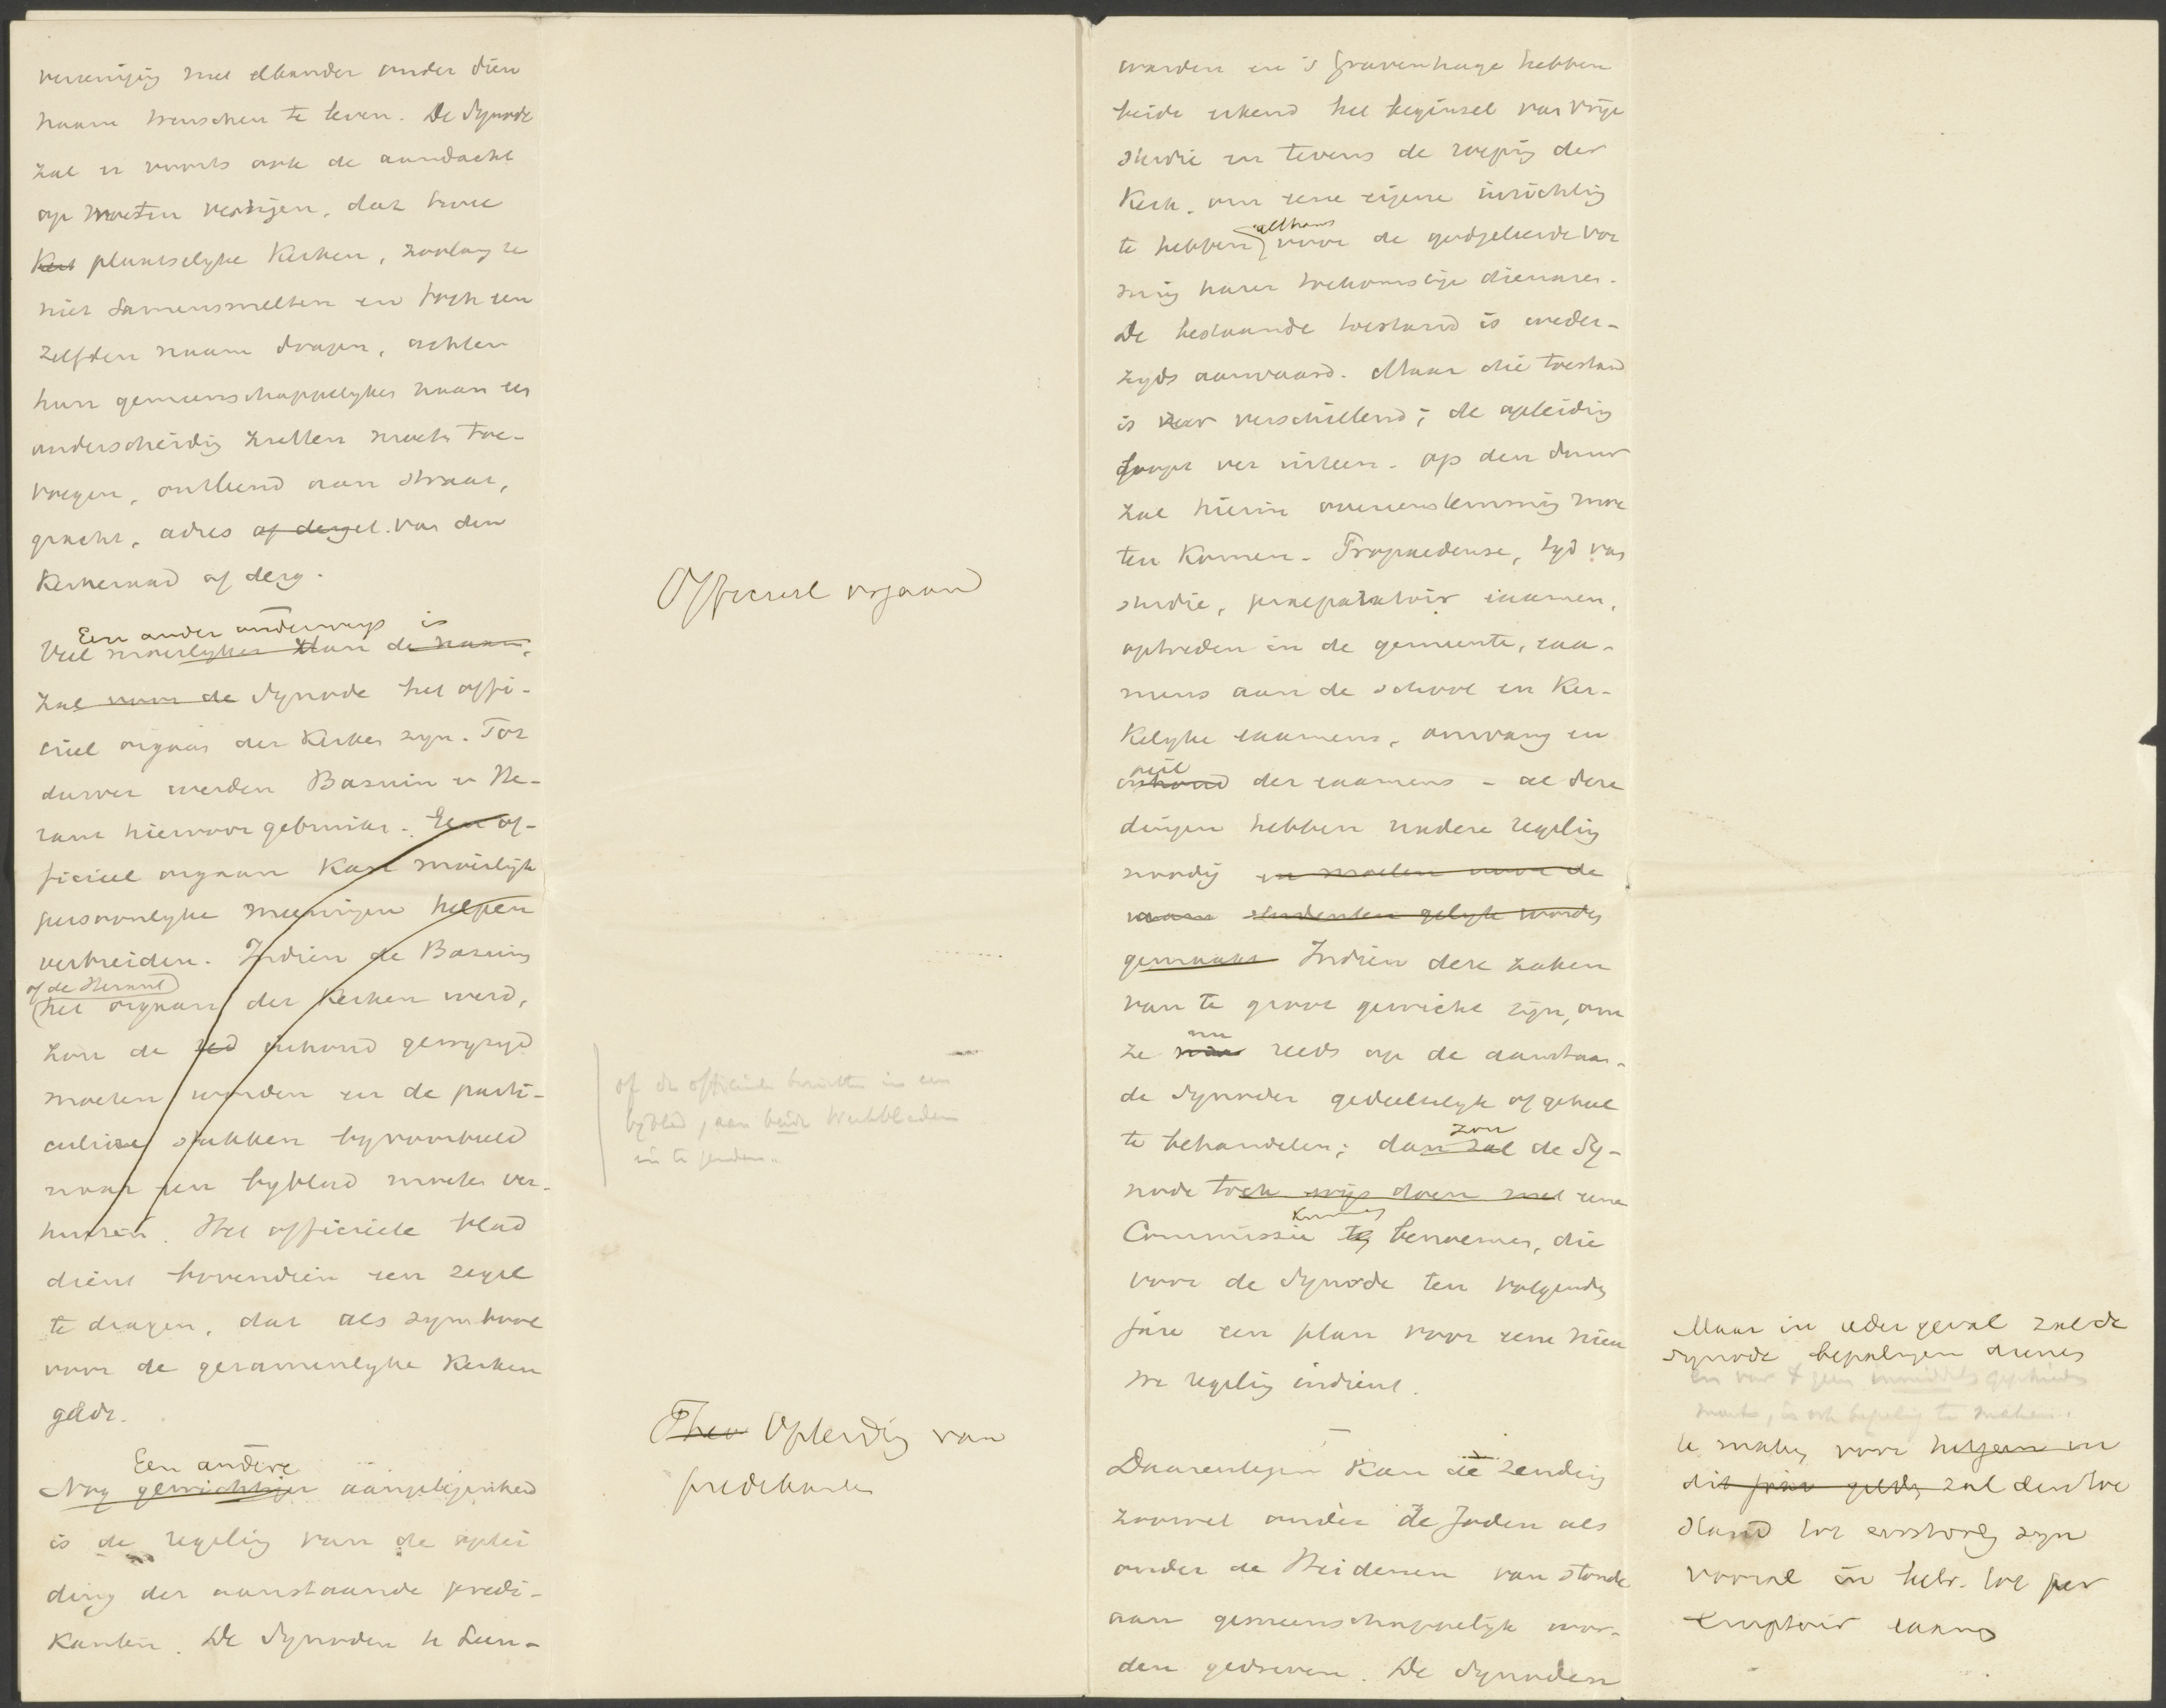 vereeniging met elkander onder dien
naam wenschen te leven. De Synode
zal er voorts ook de aandacht
op moeten vestigen, dat twee
Kerk plaatselyke Kerken, zoolang ze
niet samensmelten en toch een
zelfden naam dragen, achter
hun gemeenschappelyken naam een
onderscheiding zullen moeten toe-
voegen, ontleend aan straat,
gracht, adres of dergel. van den
Kerkeraad of derg.
Een ander onderwerp is
Veel moeilyker dan de naam,
zal voor de Synode het offi-
cieel orgaan der Kerken zyn. Tot
dusver werden Bazuin en He-
raut hiervoor gebruikt. Een of-
ficieel orgaan kan moeilijk
persoonlyke meeningen helpen
verbreiden. Indien de Bazuin
of de Heraut
het orgaan der Kerken werd,
zou de red inhoud gewyzigd
moeten worden en de parti-
culiere stukken byvoorbeeld
naar een byblad moeten ver-
huizen. Het officieele blad
dient bovendien een zegel
te dragen, dat als symbool
voor de gezamenlyke Kerken
geldt.
Een andere
Nog gewichtiger aangelegenheid
is de regeling van de oplei
ding der aanstaande predi-
kanten. De Synoden te Leeu-
Officieel orgaan
of de officieele berichten in een
byblad, aan beide Weekbladen
in te zenden.
Theo Opleiding van
predikanten
warden en 's Gravenhage hebben
beide erkend het beginsel van vrije
studie en tevens de roeping der
Kerk, om eene eigene inrichting
althans
te hebben voor de godgeleerde vor
ming harer toekomstige dienaren.
De bestaande toestand is weder-
zyds aanvaard. Maar die toestand
is zeer verschillend; de opleiding
loopt ver uiteen. Op den duur
zal hierin overeenstemming moe
ten komen. Propaedeuse, tyd van
studie, praeparatoir examen,
optreden in de gemeente, exa-
mens aan de school en Ker-
kelyke examens, omvang en
peil
inhoud der examens - al deze
dingen hebben nadere regeling
noodig en moeten voor de
studenten gelyk worden
gemaakt Indien deze zaken
van te groot gewicht zijn, om
nu
ze reeds op de aanstaan-
de Synoden gedeeltelyk of geheel
te behandelen; dan zal zou de Sy-
node toch wijs doen met eene
kunnen
Commissie te benoemen, die
voor de Synode ten volgenden
jare een plan voor eene nieu
we regeling indient.
Daarentegen kan de zending
zoowel onder de Joden als
onder de Heidenen van stonde
aan gemeenschappelijk wor-
den gedreven. De Synoden
Maar in ieder geval zal de
Synode bepalingen dienen
te maken voor hetgeen in
dit jaar gelden zal
vooral in betr. tot per
emptoir examen